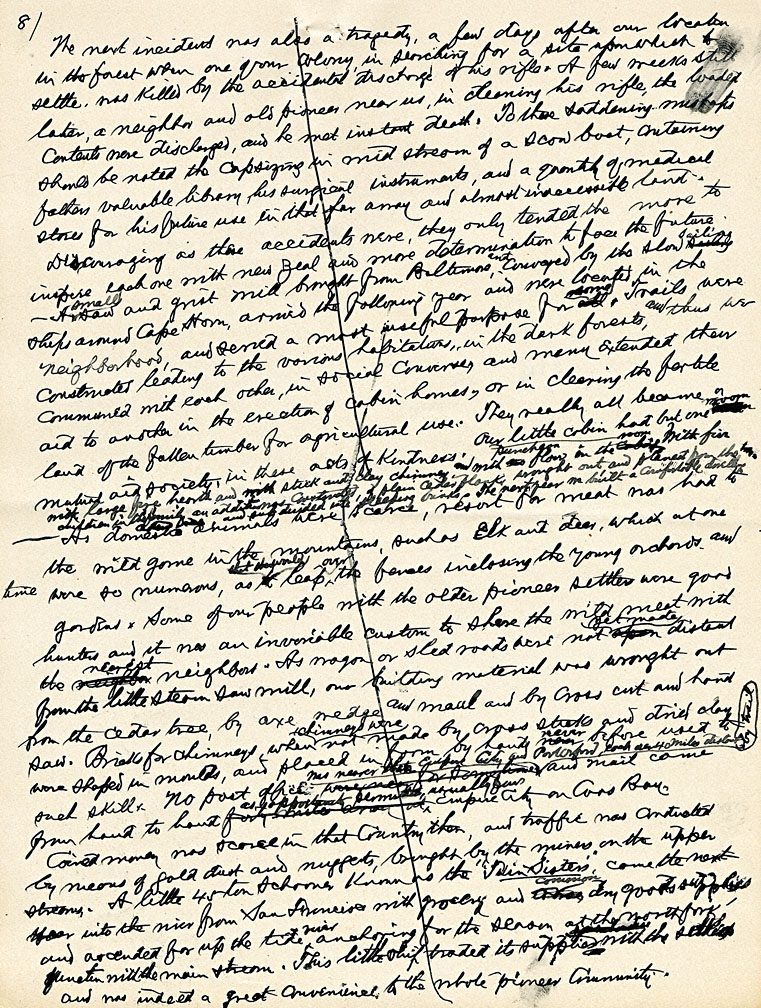 8/
The next incident was also a tragedy, a few days after our location
in the forest when one of our colony in searching for a site upon which to
settle. was killed by the accidental discharge of his rifle. A few weeks still
later, a neighbor and old pioneer near us, in cleaning his rifle, the loaded
contents were discharged, and he met instant death. To these saddening mishaps
should be noted the capsizing in mid stream of a scow boat, containing
fathers valuable library, his surgical instruments, and a quantity of medical
stores for his future use in that far away and almost inaccessible land.
Discouraging as these accidents were, they only tended the more to
inspire each one with new zeal and more determination to face the future.
— A small saw and grist mill brought from Baltimore, and conveyed by the slow sailing
ships around Cape Horn, arrived the following year and were located in the
neighborhood, and served a most useful purpose for all. Trails were
constructed leading to the various habitations, in the dark forests, and thus we
communed with each other, in social converse, and many extended their
aid to another in the erection of cabin homes, or in clearing the fertile
land of the fallen timber for agricultural use. They really all became a
mutual aid society, in these acts of kindness. Our little cabin had but one room
with puncheon floor in the With fire
with large fire hearth and with stick and clay chimney and
an addition was constructed, of cedar planks, wrought out and planed
and divided into sleeping The next year we built a comfortable
— As domestic animals were scarce, resort for meat was had to
the wild game in the mountains, such as Elk and deer, which at one
time were so numerous, as to leap over the fences inclosing the young orchards and
gardens. Some of our people with the older pioneer settlers were good
hunters and it was an invariable custom to share the wild meat with
the nearest neighbors. As wagon or sled roads were not yet made distant
from the little steam saw mill, our building material was wrought out
from the cedar tree, by axe, wedge and maul and by cross cut and hand
saw. Bricks for chimneys, when chimneys were not made by cross sticks and dried clay
were shaped in moulds, and placed in form by hands never before used to
such skill. No post office was nearer than Empire City and each 40 miles distant and mail came
from hand to hand as opportunity Empire City on Coos Bay.
Coined money was scarce in that country then, and traffic was conducted
by means of gold dust and nuggets, brought by the miners on the upper
streams. A little 45 ton schooner known as the "Twin Sisters" came the next
year into the river from San Francisco with grocery and dry goods supplies
and ascended far up the tide river, anchoring for the season at the north fork,
junction with the main stream. This little ship traded its supplies with the settlers
and was indeed a great convenience, to the whole pioneer community.